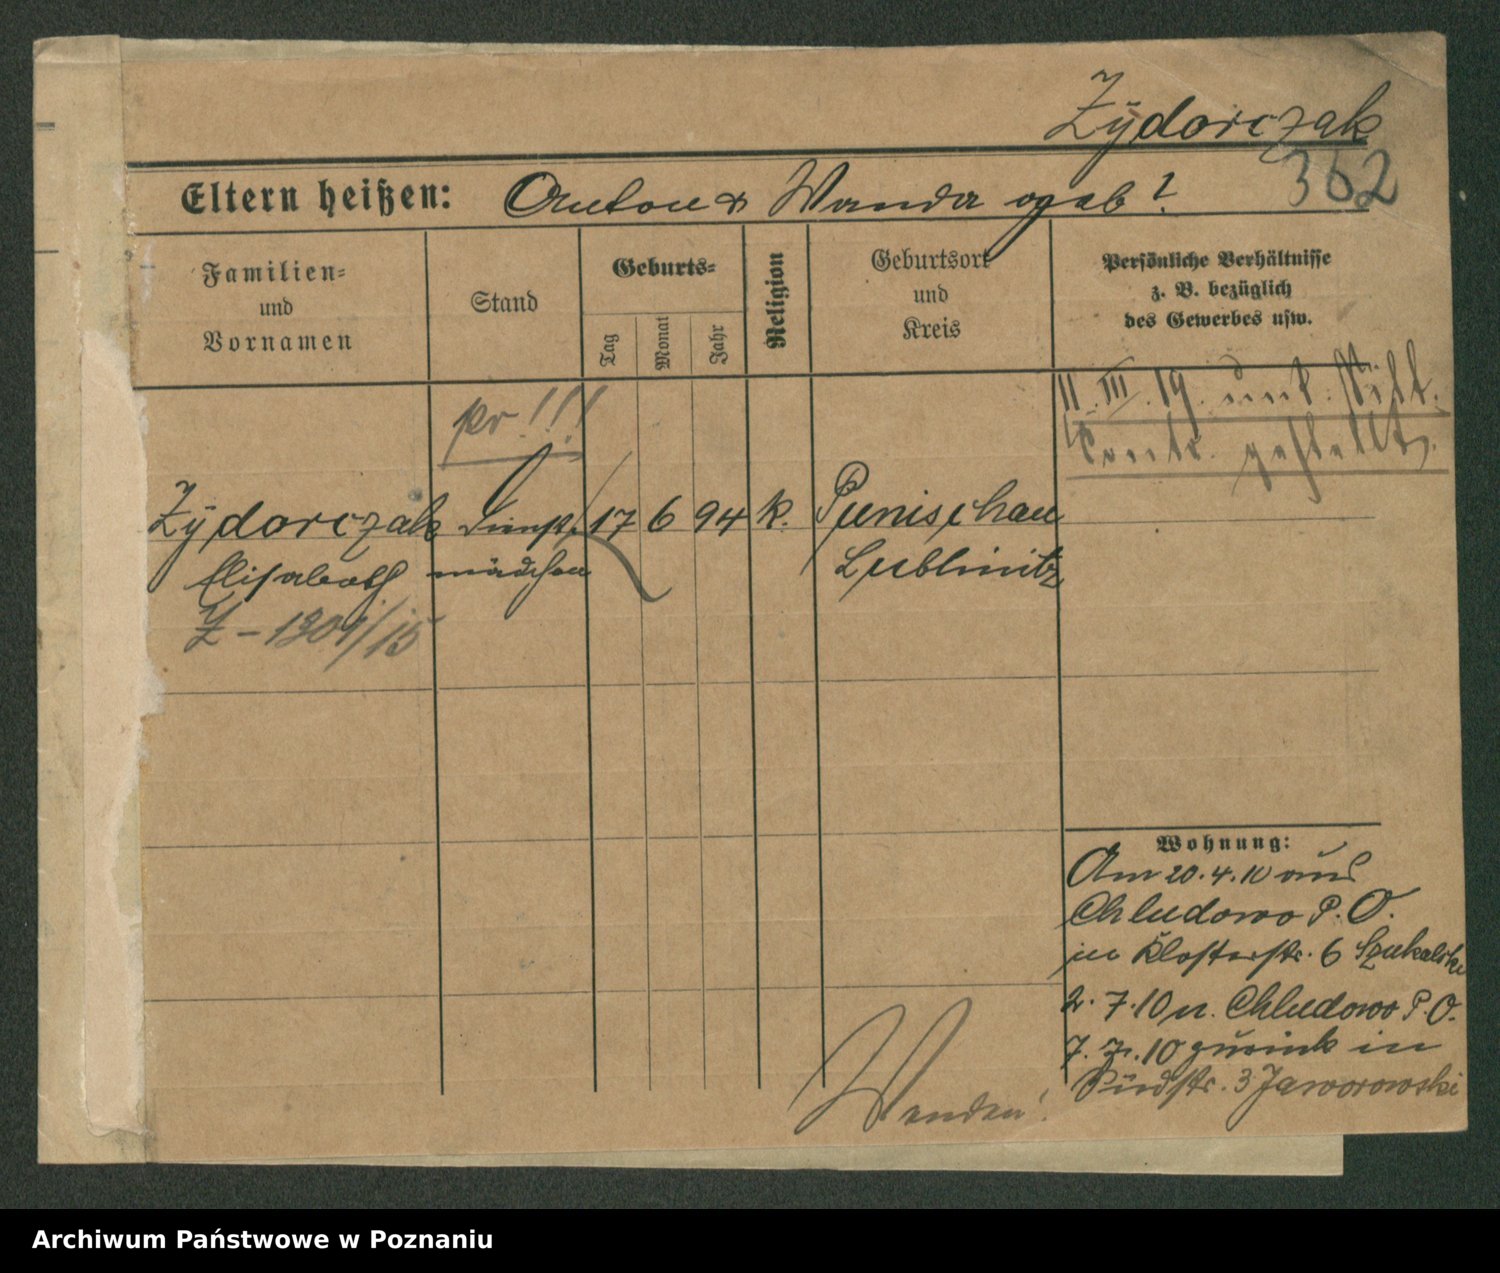 Zÿdorczak
362
Eltern heißen: Anton & Wanda geb?
Familien-
und
Vornamen
Stand
Geburts-
Tag
Monat
Jahr
Religion
Geburtsort
und
Kreis
Persönliche Verhältnisse
z. B. bezüglich
des Gewerbes usw.
11. III. 19. unt.
Contr. gestellt.
pr!!!
Zÿdorczak Dienst- 17 6 94 k. Punischau
Elisabeth mädchen Lublinitz
Z-1301/15
Wohnung:
Am 20.4.10 aus
Chludowo P. O.
in Klosterstr. 6 Szukalski
2.7.10 n. Chludowo P. O.
7.7.10 zurück in
Südstr. 3 Jaworowski
Wenden!
Archiwum Państwowe w Poznaniu